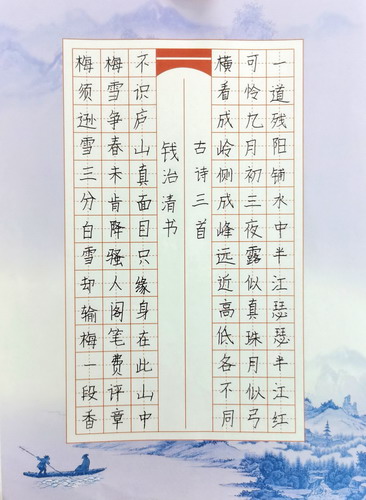 一道残阳铺水中半江瑟瑟半江红
可怜九月初三夜露似真珠月似弓
横看成岭侧成峰远近高低各不同
古诗三首
钱治清书
不识庐山真面目只缘身在此山中
梅雪争春未肯降骚人阁笔费评章
梅须逊雪三分白雪却输梅一段香